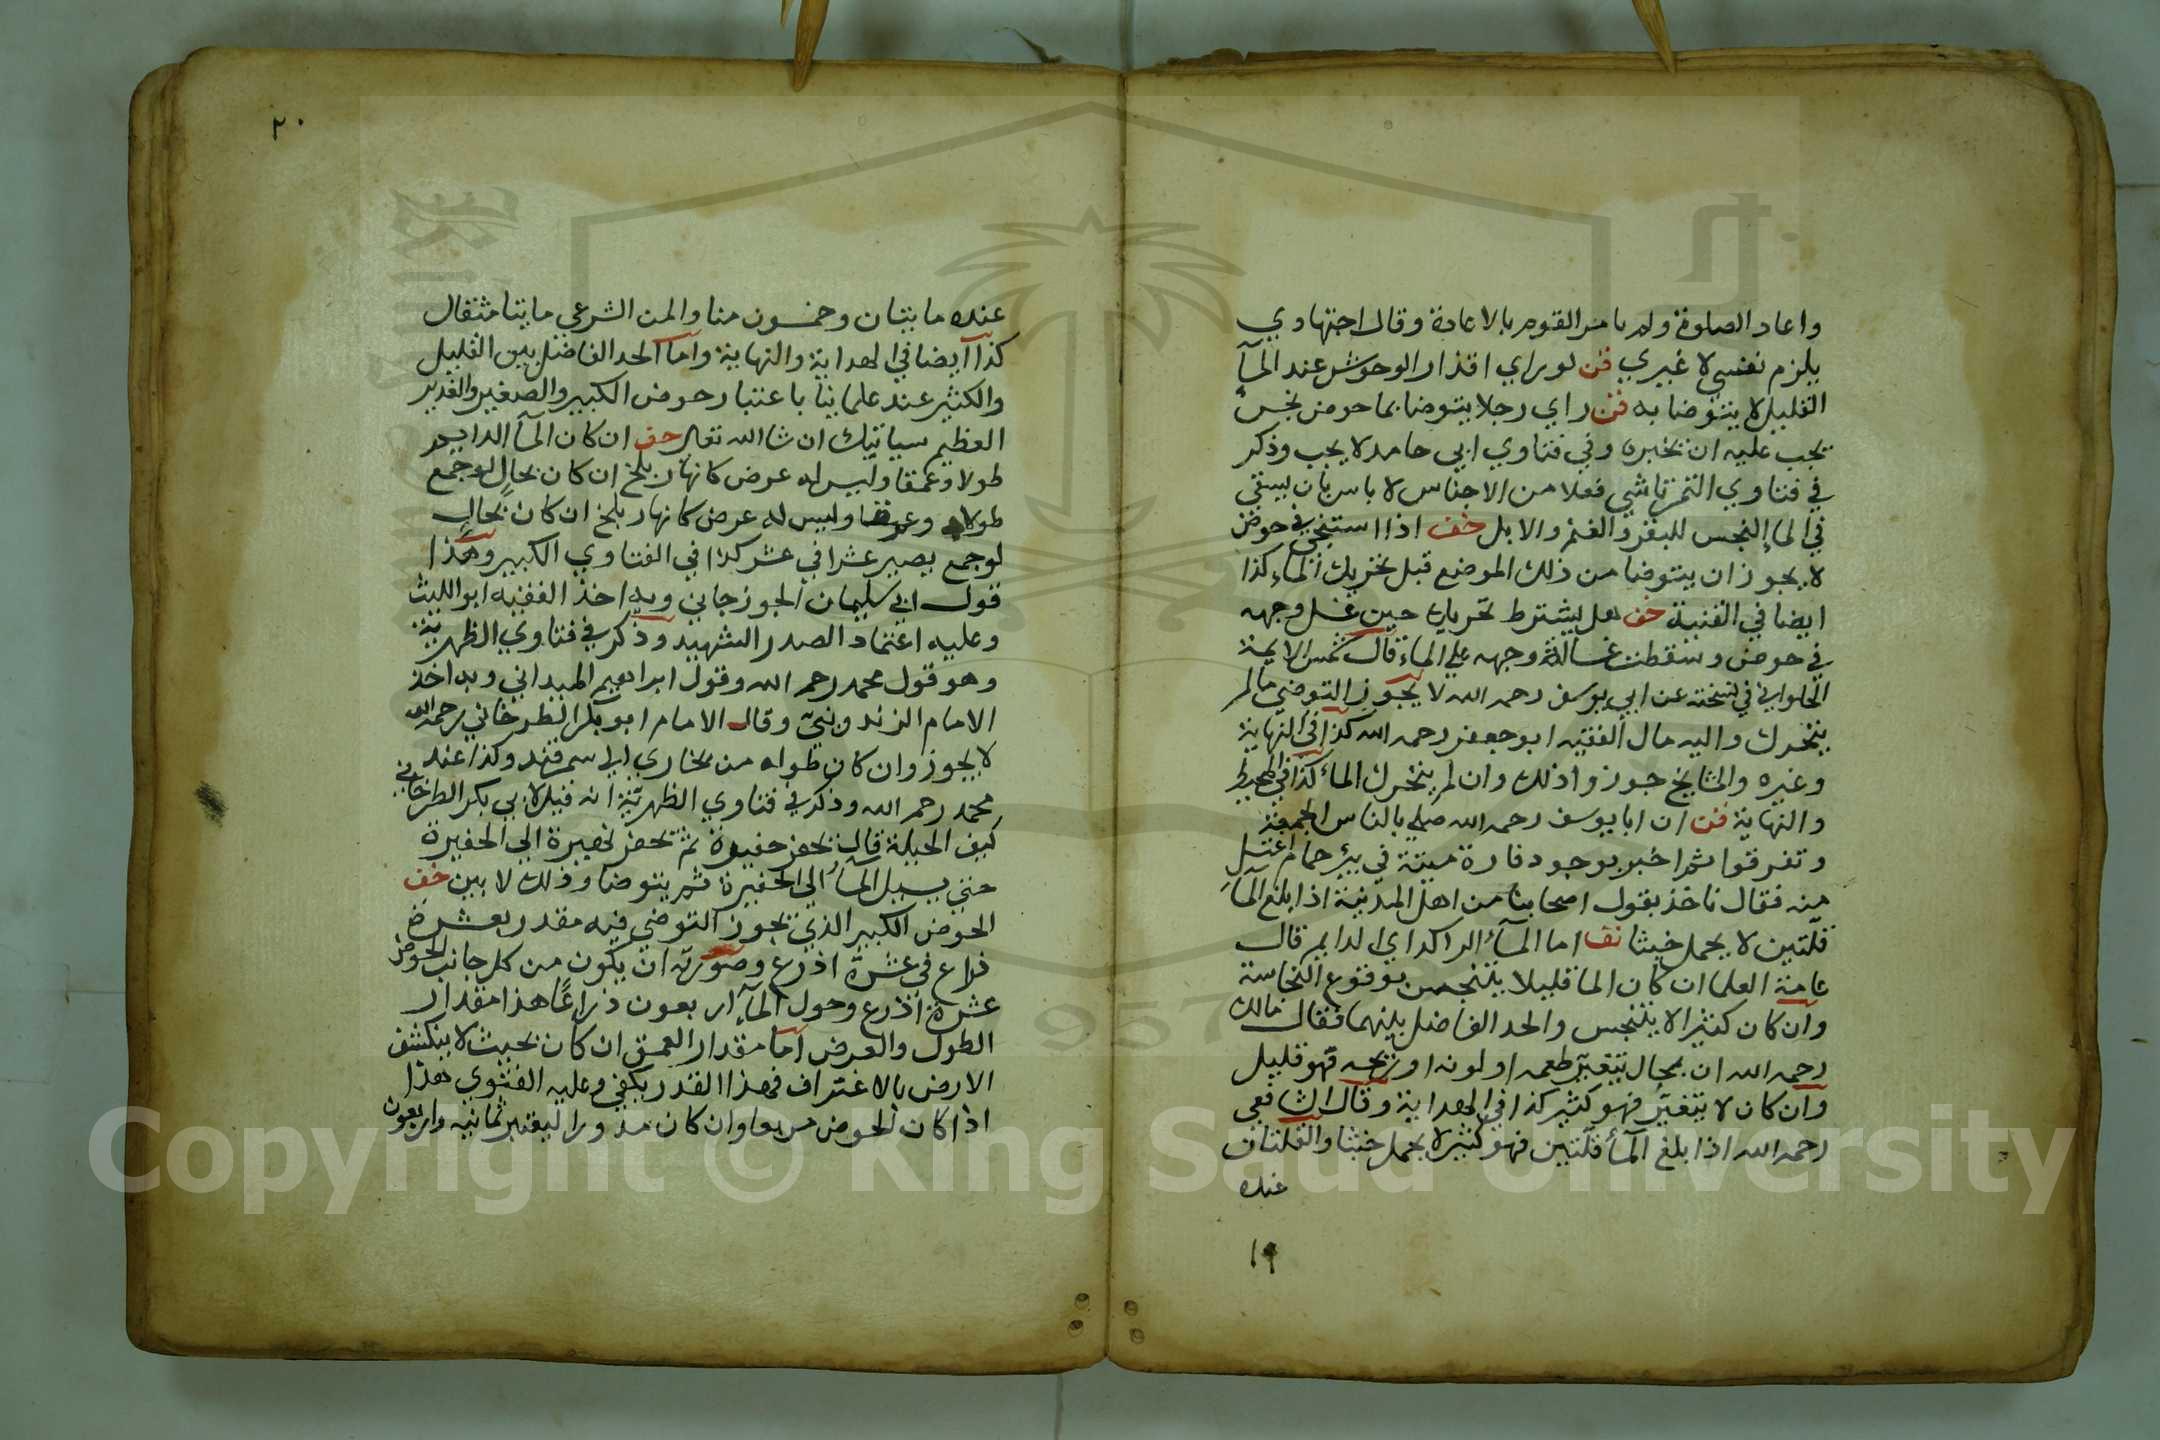 واعاد الصلوة ولم يامر القوم بالاعادة وقال اجتهادي
يلزم نفسي لا غيري فن لو راي اقذار الوحوش عند المآ
القليل لا يتوضا به فن راي رجلا يتوضا بما حوض نجس
يجب عليه ان يخبره وفي فتاوي ابي حامد لا يجب وذكر
في فتاوي التمرتاشي فعلا من الاجناس لا باس بان يسقي
في الماء النجس للبقر والغنم والابل خف اذا استنجي في حوض
لا يجوز ان يتوضا من ذلك الموضع قبل تحريك الماء كذا
ايضا في القنية خف هل يشترط تحريك حين غسل وجهه
في حوض وسقطت غسالة وجهه علي الماء قال شمس الايمة
الحلوايي في نسخته عن ابي يوسف رحمه الله لا يجوز التوضي ما لم
يتحرك واليه مال الفقيه ابو جعفر رحمه الله كذا في النهاية
وغيره والمشايخ جوزوا ذلك وان لم يتحرك الماء كذا في المحيط
والنهاية فن ان ابا يوسف رحمه الله صلي بالناس الجمعة
وتفرقوا ثم اخبر بوجود فارة ميتة في بير حمام اغتسل
منه فقال ناخذ بقول اصحابنا من اهل المدينة اذا بلغ المآ
قلتين لا يحمل خبثا نف اما المآ الراكد اي الدايم قال
عامة العلما ان كان الما قليلا يتنجس بوقوع النجاسة
وان كان كثيرا لا يتنجس والحد الفاضل بينهما فقال مالك
رحمه الله ان بحال يتغير طعمه او لونه او ريحه فهو قليل
وان كان لا يتغير فهو كثير كذا في الهداية وقال الشافعي
رحمه الله اذا بلغ المآ قلتين فهو كثير لا يحمل خبثا والقلتان
عنده
١٩
٢٠
عنده مايتان وخمسون منا والمن الشرعي مايتا مثقال
كذا ايضا في الهداية والنهاية واما الحد الفاضل بين القليل
والكثير عند علماينا باعتبار حوض الكبير والصغير والغدير
العظيم سياتيك ان شا الله تعالي خف ان كان المآ الدايم
طولا وعمقا وليس له عرض كانهار بلخ ان كان بحال لو جمع
طولا وعرضا وليس له عرض كانهار بلخ ان كان بحال
لو جمع يصير عشرا في عشر كذا في الفتاوي الكبير وهذا
قول ابي سليمان الجوزجاني وبه اخذ الفقيه ابو الليث
وعليه اعتماد الصدر الشهيد وذكر في فتاوي الظهرية
وهو قول محمد رحمه الله وقول ابراهيم الميداني وبه اخذ
الامام الزندوينتي وقال الامام ابو بكر الطرخاني رحمه الله
لا يجوز وان كان طوله من بخاري الي سمرقند وكذا عند
محمد رحمه الله وذكر في فتاوي الظهرية انه قيل لابي بكر الطرخاني
كيف الحيلة قال تحفر حفيرة ثم تحفر نهيرة الي الحفيرة
حتي يسيل المآ الي الحفيرة ثم يتوضا وذلك لا بين خف
الحوض الكبير الذي يجوز التوضي فيه مقدر بعشرة
ذراع في عشرة اذرع وصورته ان يكون من كل جانب الحوض
عشرة اذرع وحول المآ اربعون ذراعًا هذا مقدار
الطول والعرض اما مقدار العمق ان كان بحيث لا ينكشف
الارض بالاغتراف فهذا القدر يكفي وعليه الفتوي هذا
اذا كان الحوض مربعا وان كان مدورا ليعتبر ثمانيه واربعون
Copyright © King Saud University
957